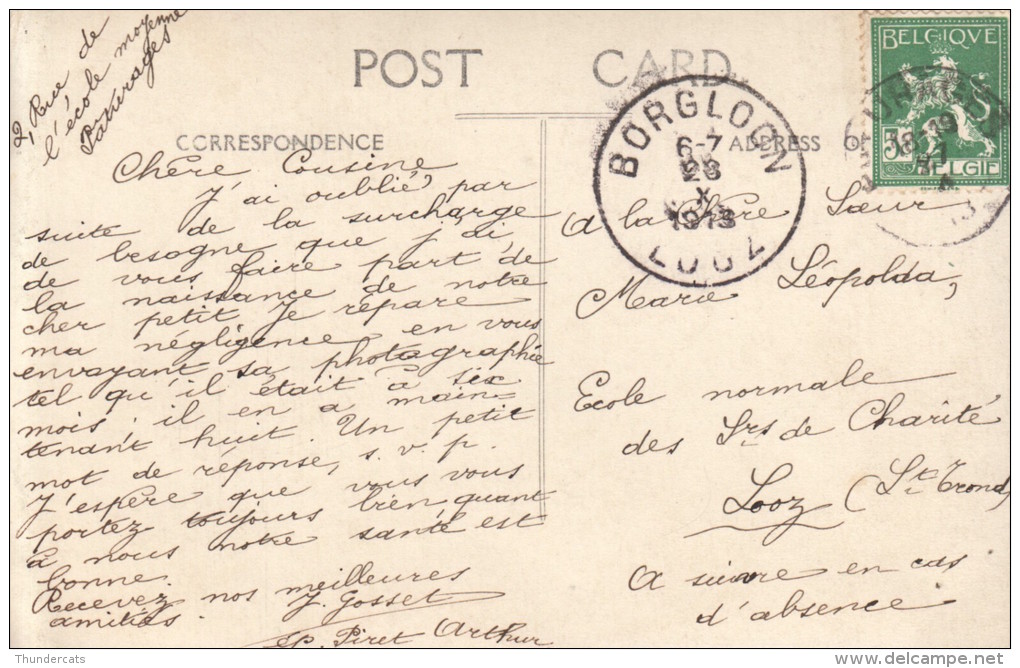 2, Rue de
l'école moyenne
Pâturages
POST CARD
CORRESPONDENCE
ADDRESS O
Chère Cousine
J'ai oublié, par
suite de la surcharge
de besogne que j'ai,
de vous faire part de
la naissance de notre
cher petit. Je répare
ma négligence en vous
envoyant sa photographie
tel qu'il était à six
mois; il en a main-
tenant huit. Un petit
mot de réponse, s.v.p.
J'espère que vous vous
portez toujours bien, quant
à nous notre santé est
bonne.
Recevez nos meilleures
amitiés. J. Gosset
ep. Piret Arthur
BORGLOON
6-7
28
X
1913
LOOZ
BELGIQUE
18-19
27
X
13
5c
BELGIË
A la Chère Sœur
Marie Léopolda,
Ecole normale
des Srs de Charité
Looz (St Trond)
A suivre en cas
d'absence
Thundercats
delcampe.net